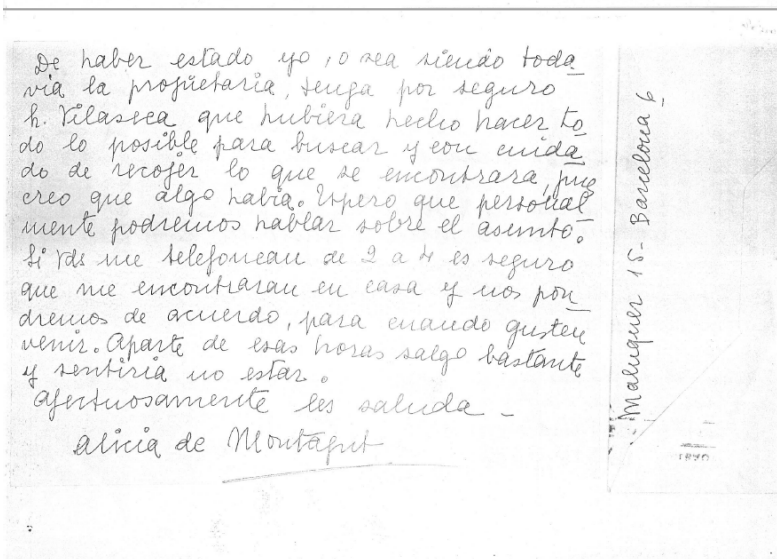 De haber estado yo, o sea siendo toda
via la propietaria, tenga por seguro
Sr. Vilaseca que hubiera hecho hacer to
do lo posible para buscar y con cuida
do de recojer lo que se encontrara, pues
creo que algo habia. Espero que personal
mente podremos hablar sobre el asunto.
Si Vds me telefonean de 2 a 4 es seguro
que me encontraran en casa y nos pon
dremos de acuerdo, para cuando gusten
venir. Aparte de esas horas salgo bastante
y sentiria no estar.
Afectuosamente les saluda -
Alicia de Montagut
Maluquer 15 - Barcelona 6